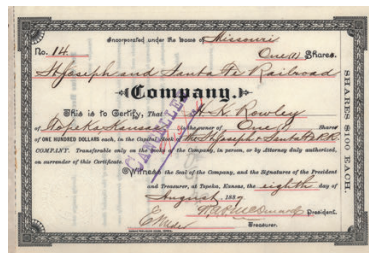 Incorporated under the Laws of Missouri
No. 14 One (1) Shares.
St Joseph and Santa Fe Railroad
Company.
This is to Certify, That H. K. Rowley
of Topeka, Kansas is the owner of One Shares
of ONE HUNDRED DOLLARS each, in the Capital Stock of the St Joseph & Santa Fe R.R.
COMPANY. Transferable only on the books of the Company, in person, or by Attorney duly authorized,
on surrender of this Certificate.
CANCELLED
Witness the Seal of the Company, and the Signatures of the President
and Treasurer, at Topeka, Kansas, the eighth day of
August 188
President.
E Wilder
Treasurer.
SHARES $100 EACH.